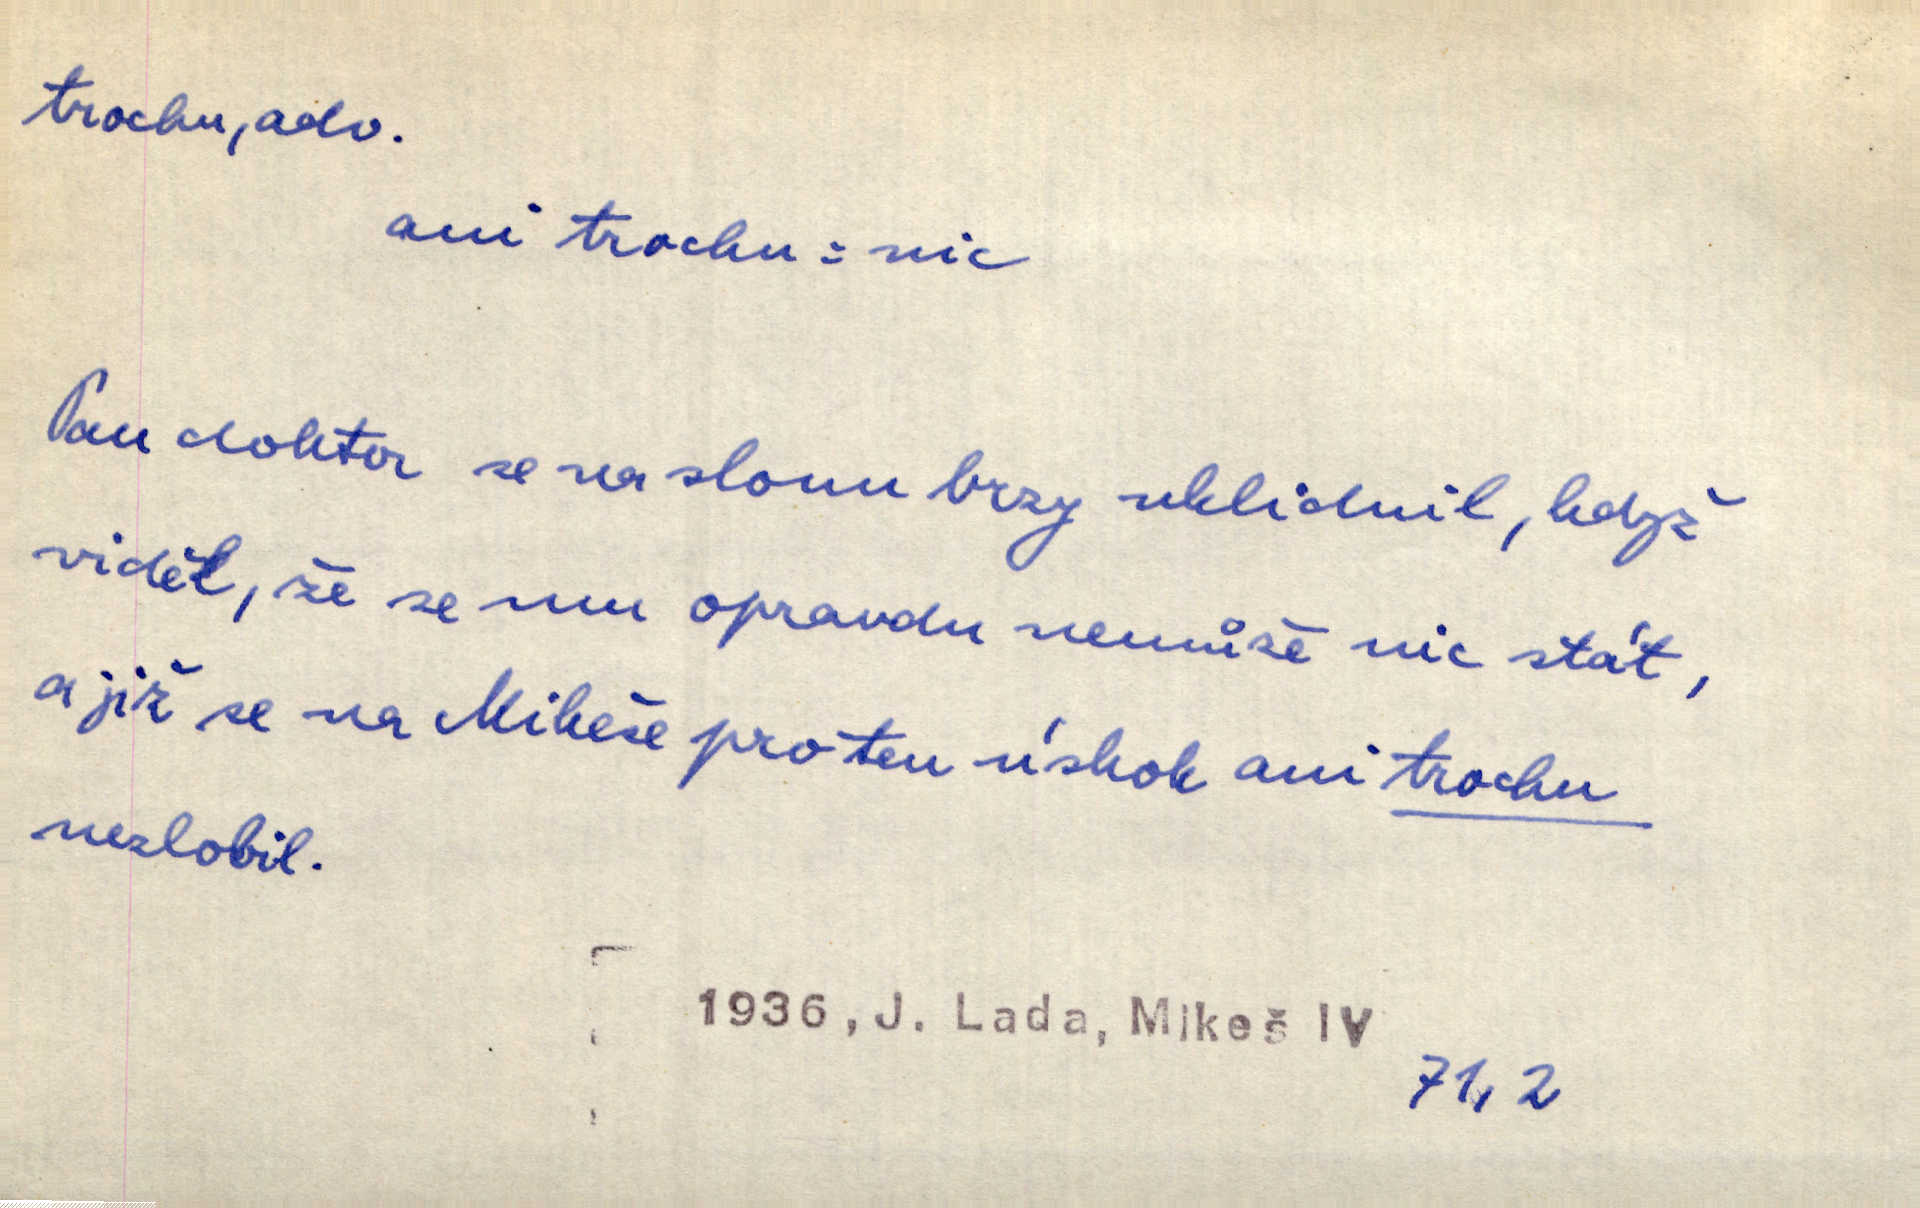 trochu, adv.
ani trochu = nic
Pan doktor se na slonu brzy uklidnil, když
viděl, že se mu opravdu nemůže nic stát,
a již se na Mikeše pro ten úskok ani trochu
nezlobil.
1936, J. Lada, Mikeš IV
71, 2